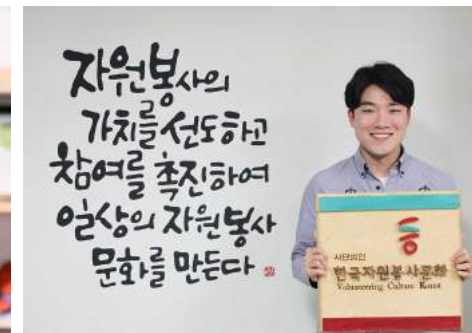 자원봉사의
가치를 선도하고
참여를 촉진하여
일상의 자원봉사
문화를 만든다
사단법인
한국자원봉사문화
Volunteering Culture Korea